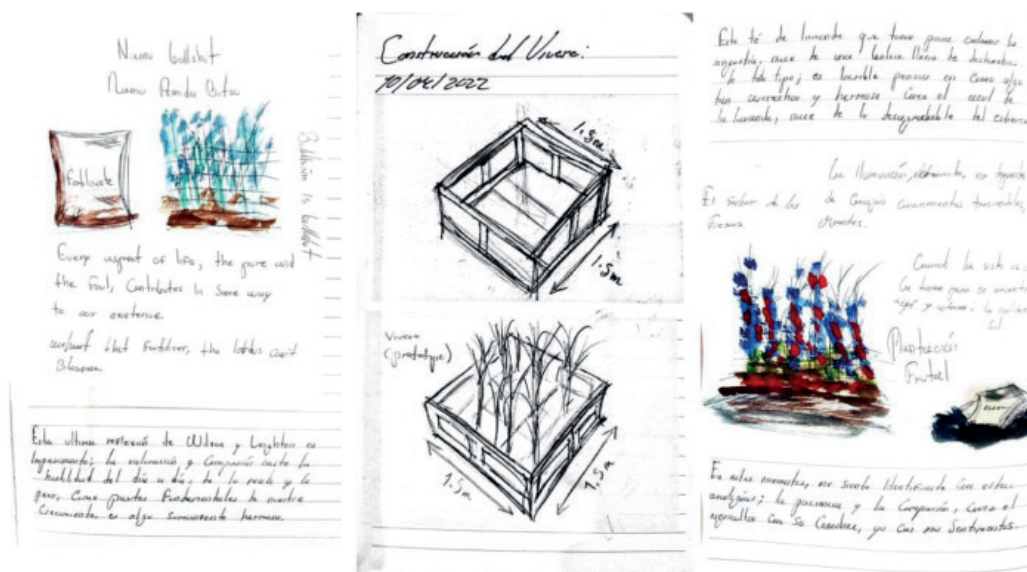 Namu bullshit
Namu Amida Butsu
Fertilizante
Buddhism is bullshit
Every aspect of life, the pure and
the foul, contributes in some way
to our existence
without that fertilizer, the lotus can't
Blossom
Esta ultima reflexión de Wilson y Leighton es
impresionante; la valoración y compasión ante la
hostilidad del día a día, de lo malo y lo
peor, como puntos fundamentales de nuestro
crecimiento, es algo sumamente hermoso.
Construcción del Vivero:
10/04/2022
1.5m
1.5m
Vivero
(prototype)
1.5m
1.5m
Este té de lavanda que tomo para calmar la
angustia, nace de una bolsa llena de desechos
de todo tipo; es increíble pensar en como algo
tan y hermoso como el azul de
la lavanda, nace de lo desagradable del
La iluminación, no depende
de conseguir conocimientos
El sabor de las
Fresas
Plantación
Frutal
En estos momentos, me siento identificado con estas
analogías; la paciencia y la compasión, como el
agricultor con su , yo con mis sentimientos.